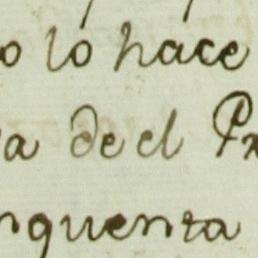 o lo hace
a de el Pr
nquenta